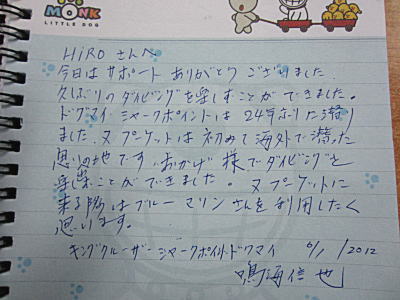 MONK
LITTLE DOG
HIROさんへ
今日はサポートありがとうございました.
久しぶりのダイビングを楽しすことができました。
ドグマイ シャークポイントは24年ぶりに潜り
ました。又プーケットは初めて海外で潜った
思い出の地です。おかげ様でダイビングを
楽しすことができました。又プーケットに
来る際はブルーマリンさんを利用したく
思います。
キングクルーザー シャークポイント ドクマイ 6/1/2012
鳴海信也